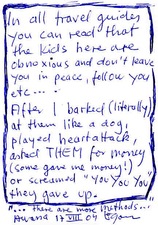 In all travel guides
you can read that
the kids here are
obnoxious and don't leave
you in peace, follow you
etc...
After I barked (literally)
at them like a dog,
played heart attack,
asked THEM for money
(some gave me money!)
or screamed "YOU YOU YOU"
they gave up.
"... there are more methods..."
17 VIII 04